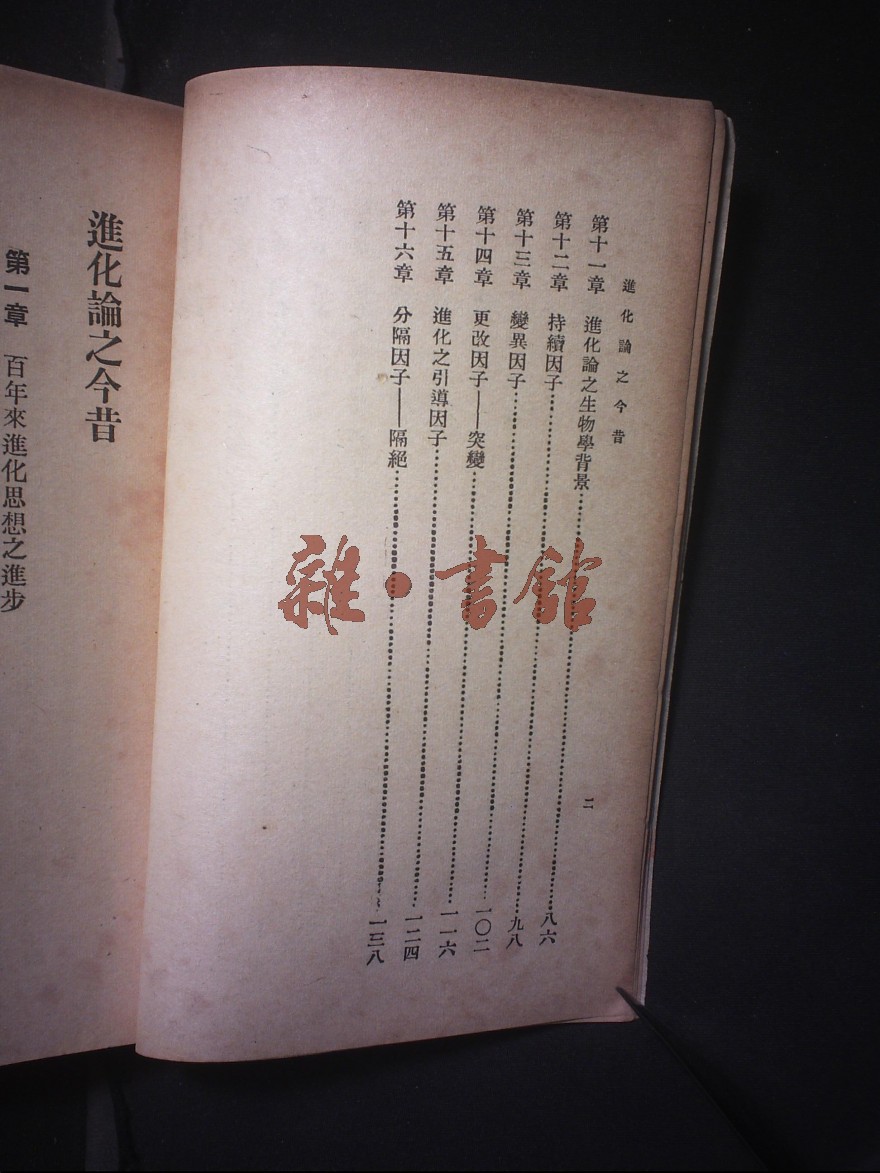 進化論之今昔
二
第十一章 進化論之生物學背景……………………八六
第十二章 持續因子……………………九八
第十三章 變異因子……………………一〇二
第十四章 更改因子——突變……………………一一六
第十五章 進化之引導因子……………………一二四
第十六章 分隔因子——隔絕……………………一三八
進化論之今昔
第一章 百年來進化思想之進步
雜·書館